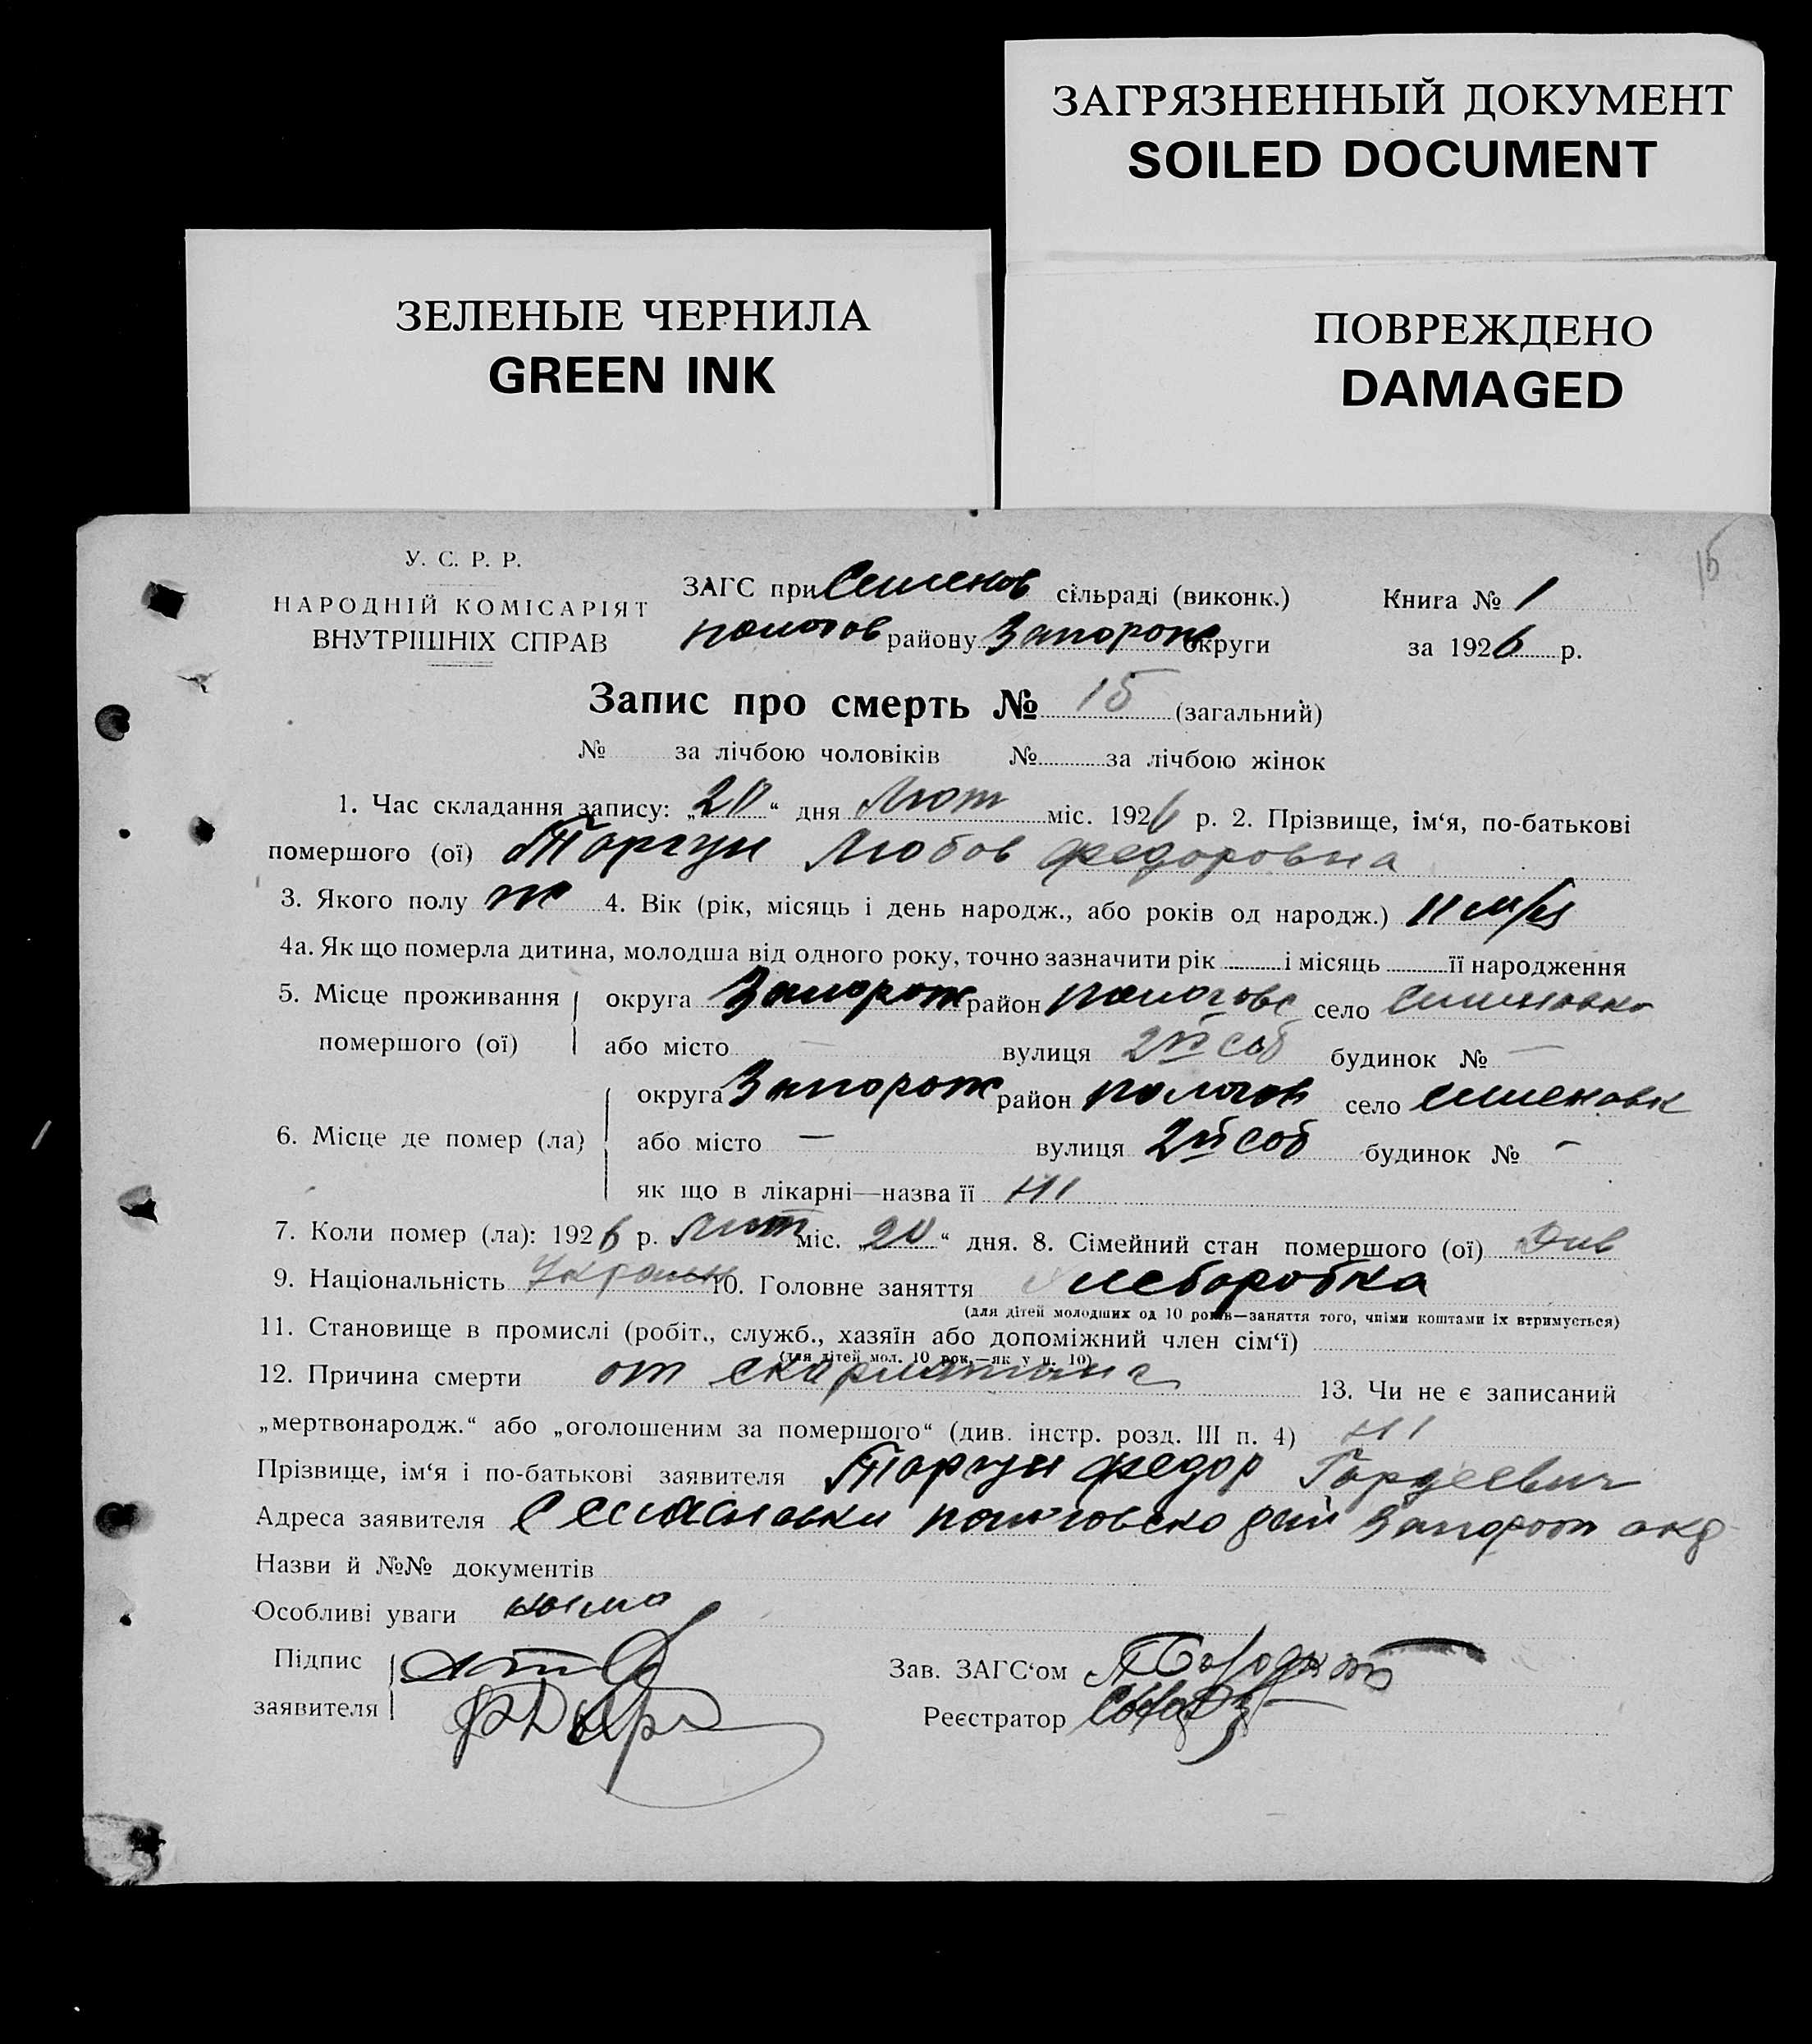 ЗАГРЯЗНЕННЫЙ ДОКУМЕНТ
SOILED DOCUMENT
ЗЕЛЕНЫЕ ЧЕРНИЛА
GREEN INK
ПОВРЕЖДЕНО
DAMAGED
15
У. С. Р. Р.
НАРОДНІЙ КОМІСАРІЯТ
ВНУТРІШНІХ СПРАВ
ЗАГС при Семенов сільраді (виконк.)
пологов району Запорож округи
Книга № 1
за 1926 р.
Запис про смерть № 15 (загальний)
№ за лічбою чоловіків № за лічбою жінок
1. Час складання запису: „20“ дня Лют міс. 1926 р. 2. Прізвище, ім‘я, по-батькові
помершого (ої) Торгун Любов Федоровна
3. Якого полу ж 4. Вік (рік, місяць і день народж., або років од народж.) 11 м/ц
4а. Як що померла дитина, молодша від одного року, точно зазначити рік і місяць її народження
5. Місце проживання помершого (ої) округа Запорож район пологовс село
або місто — вулиця 2й соб будинок № —
6. Місце де помер (ла) округа Запорож район пологов село семеновк
або місто — вулиця 2й соб будинок № -
як що в лікарні—назва її ні
7. Коли помер (ла): 1926 р. лют міс. „20“ дня. 8. Сімейний стан помершого (ої)
9. Національність Україн 10. Головне заняття хлеборобка
(для дітей молодших од 10 років—заняття того, чиїми коштами їх втримується)
11. Становище в промислі (робіт., служб., хазяїн або допоміжний член сім‘ї)
(для дітей мол. 10 рок.—як у п. 10)
12. Причина смерти от скарлатини 13. Чи не є записаний
„мертвонародж.“ або „оголошеним за помершого“ (див. інстр. розд. III п. 4) ні
Прізвище, ім‘я і по-батькові заявителя Торгун Федор Гордеевич
Адреса заявителя С Семеновки Запорож окр
Назви й №№ документів
Особливі уваги нема
Підпис заявителя
Зав. ЗАГС‘ом
Реєстратор